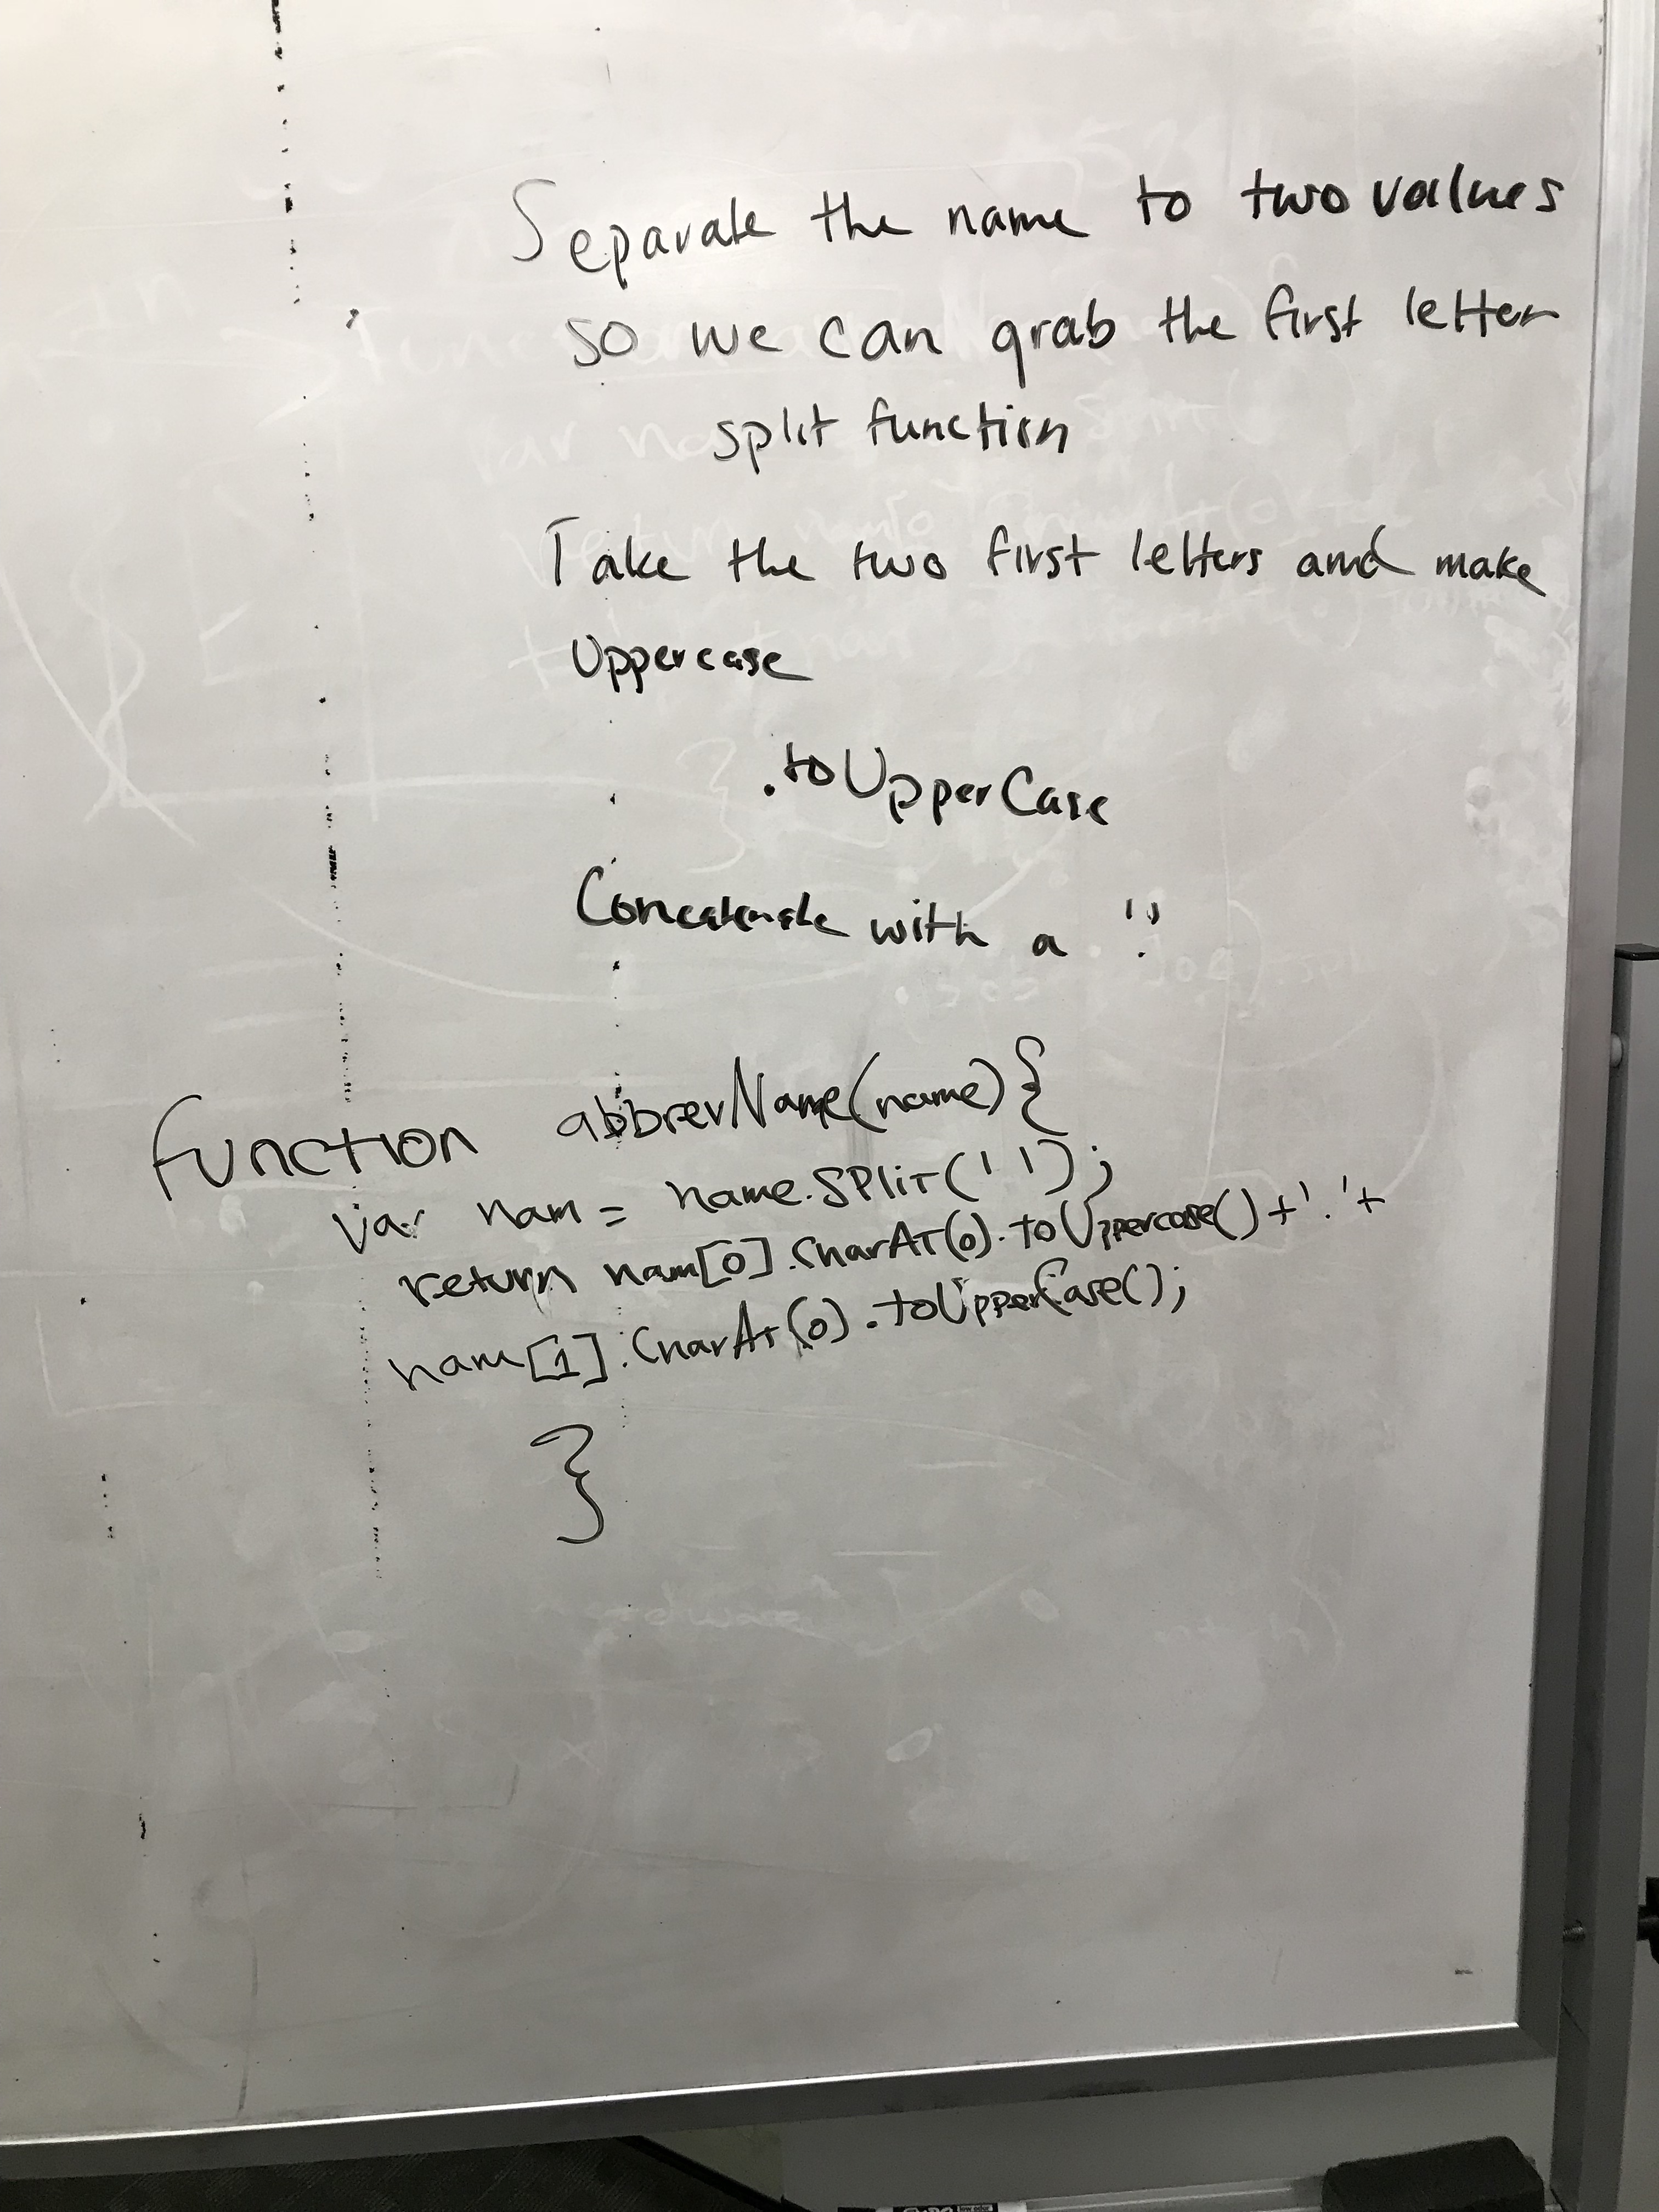 Separate the name to two values
so we can grab the first letter
split function
Take the two first letters and make
Uppercase
.toUpperCase
Concatenate with a '.'
function abbrevName(name){
var nam = name.split(' ');
return nam[0].charAt(0).toUppercase()+'.'+
nam[1].charAt(0).toUpperCase();
}